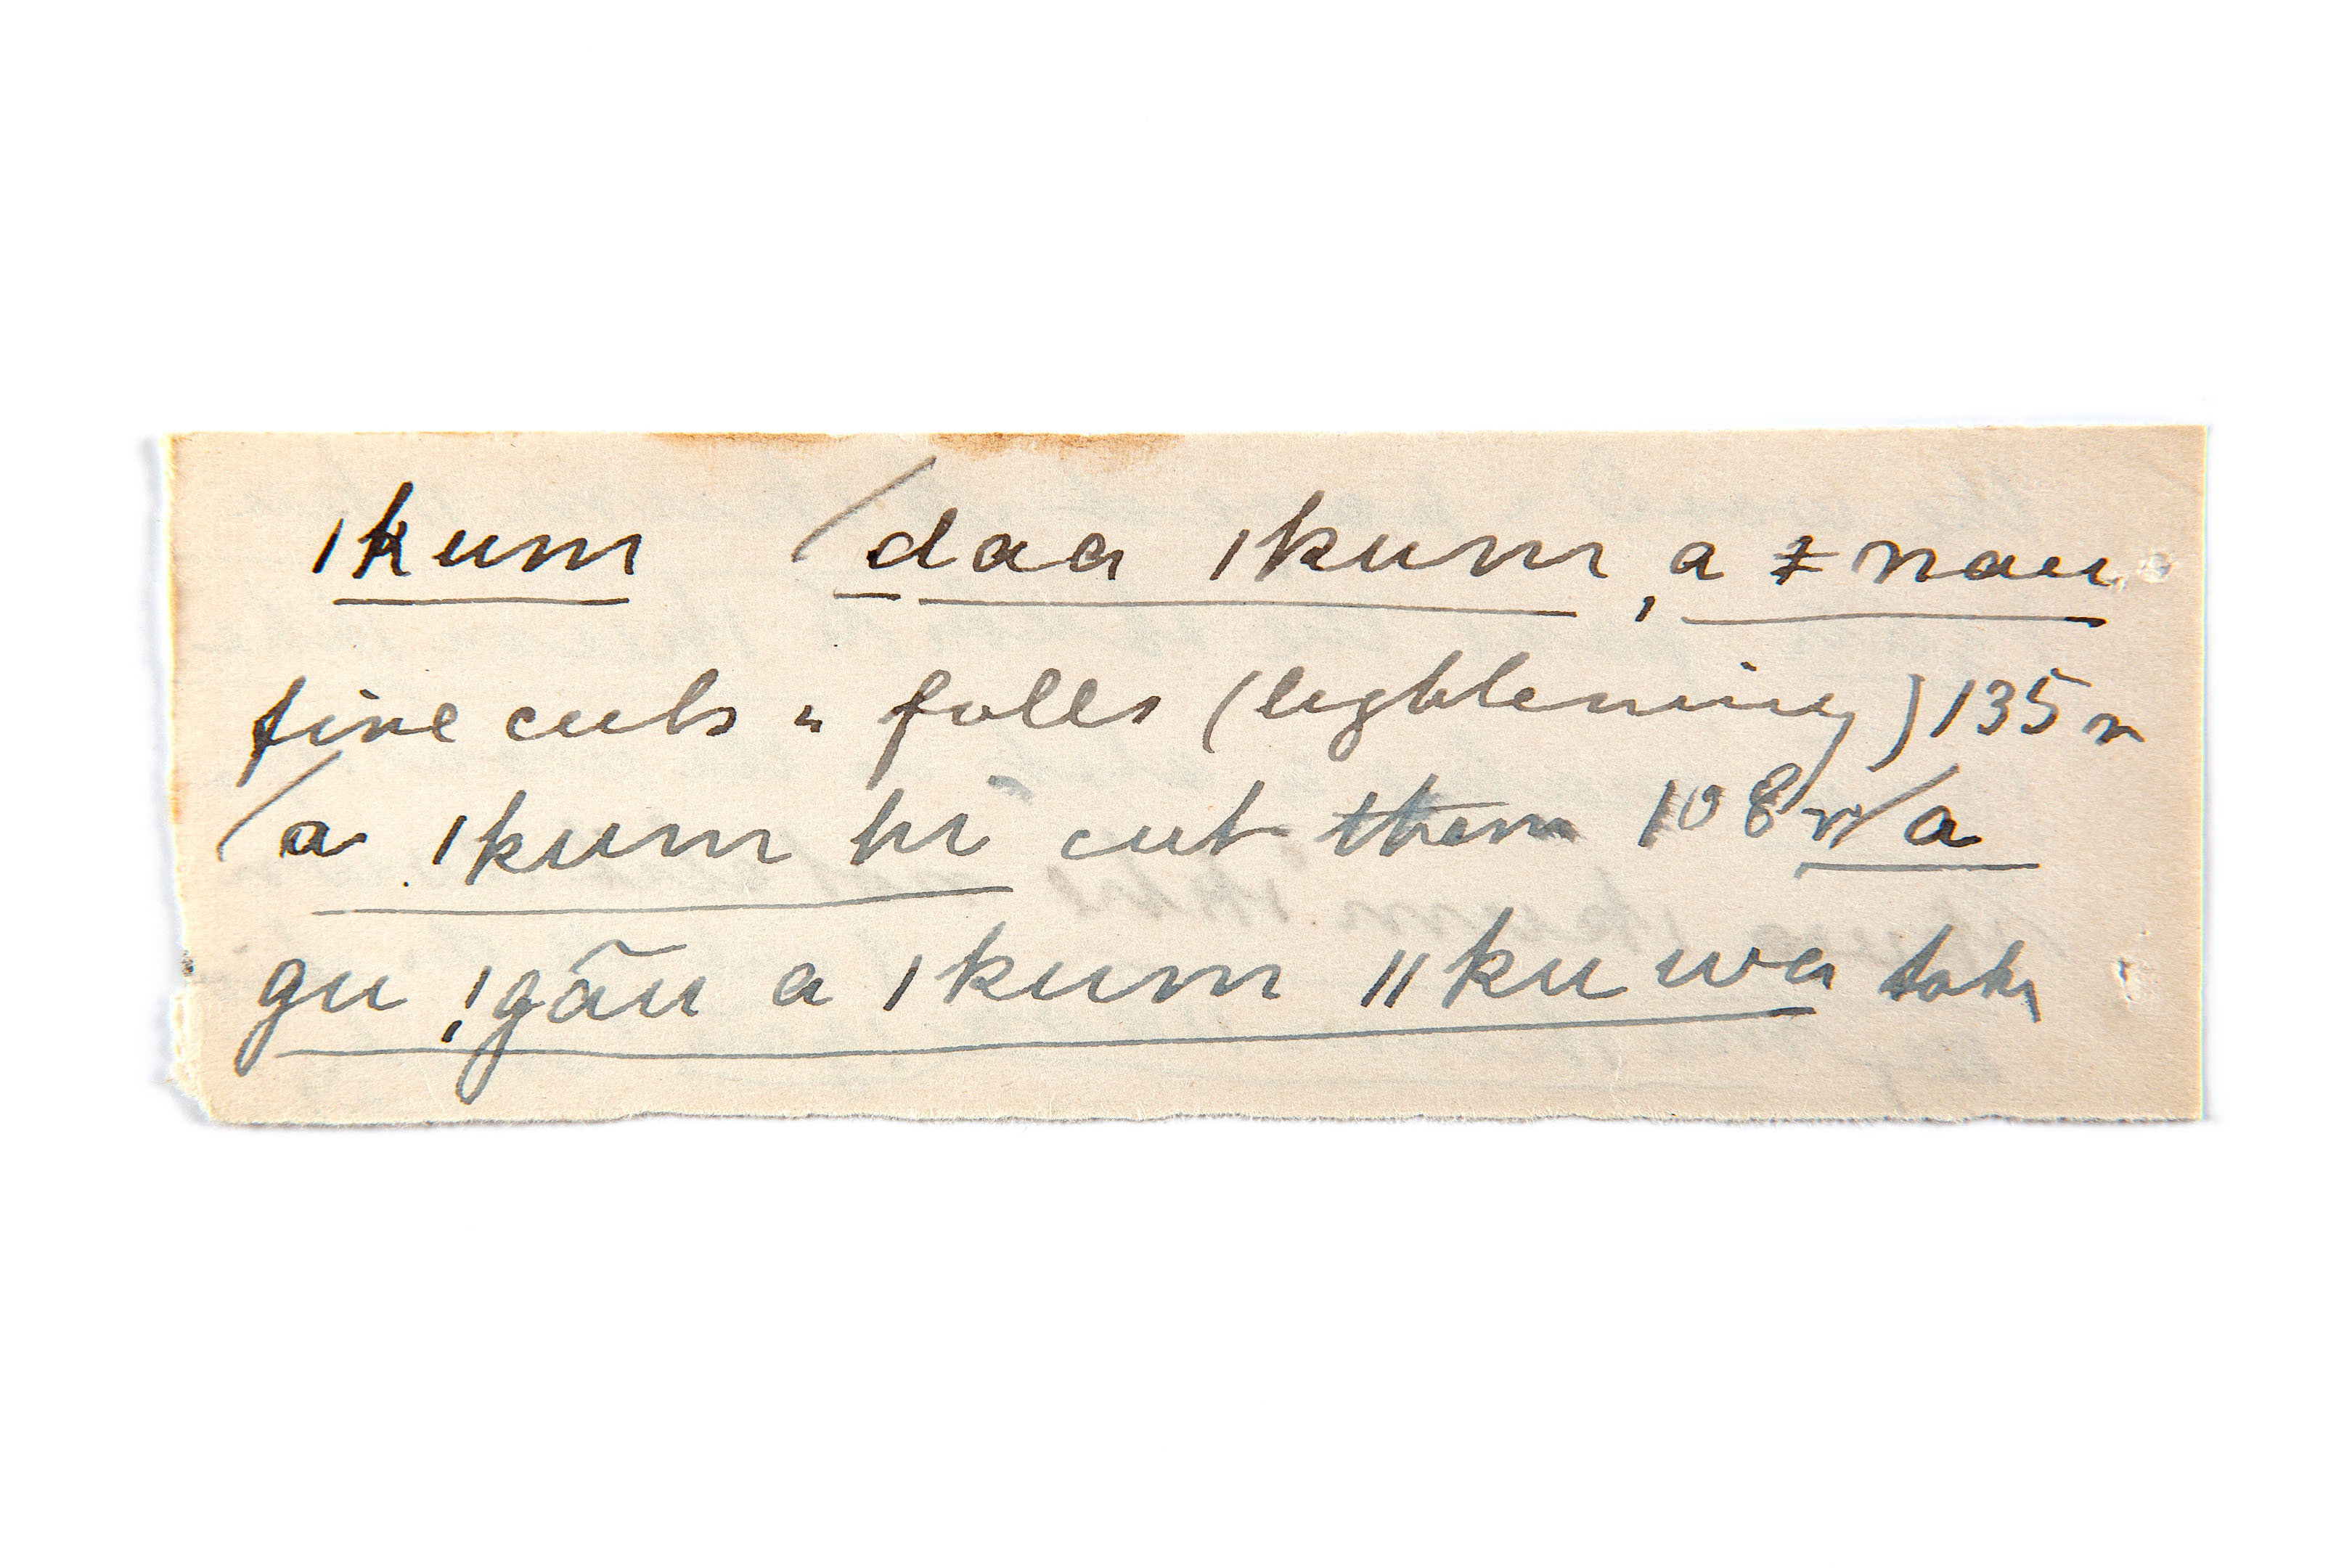 ǀkum /daa ǀkum, a ǂnau
fire cuts & falls (lightening) 135 r
/a ǀkum hĩ cut them 108 r/a
gu !gãu a ǀkum ǁkuwa take